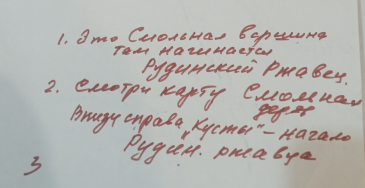 1. Это Смольная вершина
там начинается
Рудинский Ржавец.
2. Смотри карту Смольная
Внизу справа "Кусты" - начало
Рудин. ржавца
3